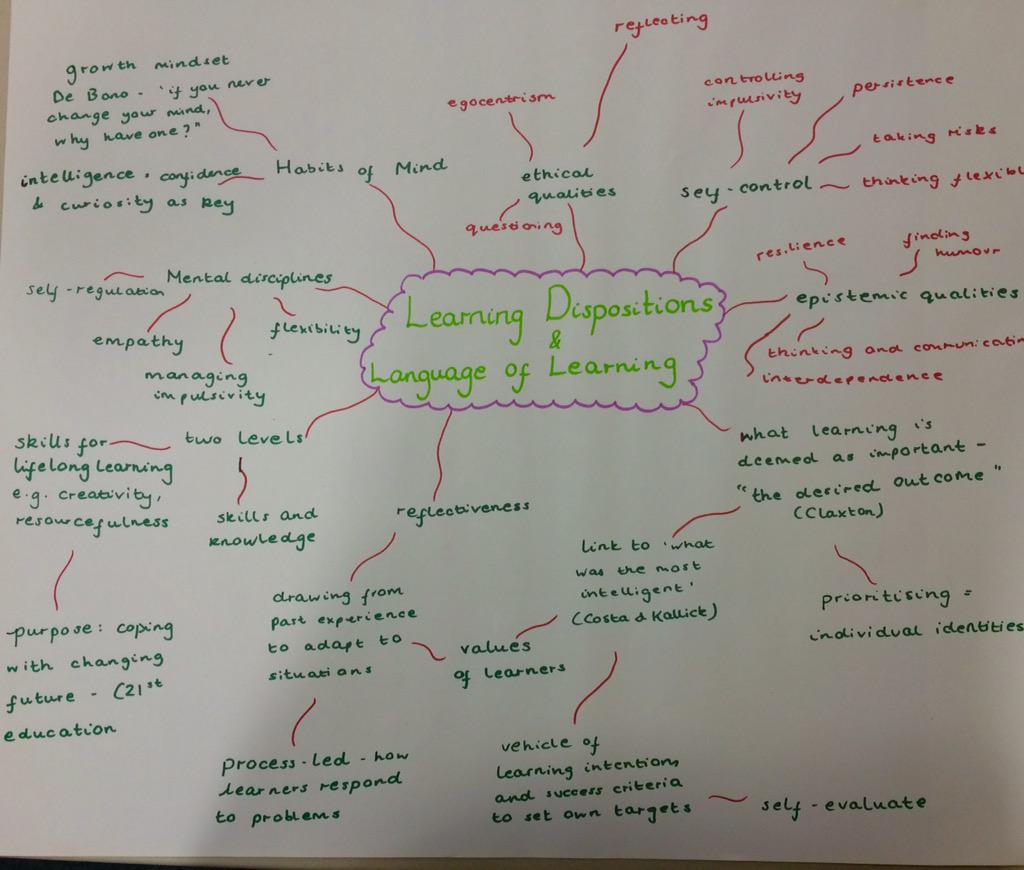 growth mindset
De Bono - 'if you never
change your mind,
why have one?"
intelligence, confidence
& curiosity as key
Habits of Mind
egocentrism
reflecting
ethical
qualities
questioning
controlling
impulsivity
persistence
taking risks
self-control
thinking flexibl
resilience
finding
humour
epistemic qualities
thinking and communicatin
interdependence
Mental disciplines
self-regulation
empathy
managing
impulsivity
flexibility
Learning Dispositions
&
Language of Learning
two levels
skills for
lifelong learning
e.g. creativity,
resourcefulness
skills and
knowledge
purpose: coping
with changing
future - C21st
education
reflectiveness
drawing from
past experience
to adapt to
situations
process-led - how
learners respond
to problems
values
of learners
link to 'what
was the most
intelligent'
(Costa & Kallick)
what learning is
deemed as important -
"the desired outcome"
(Claxton)
prioritising =
individual identities
vehicle of
learning intentions
and success criteria
to set own targets
self-evaluate